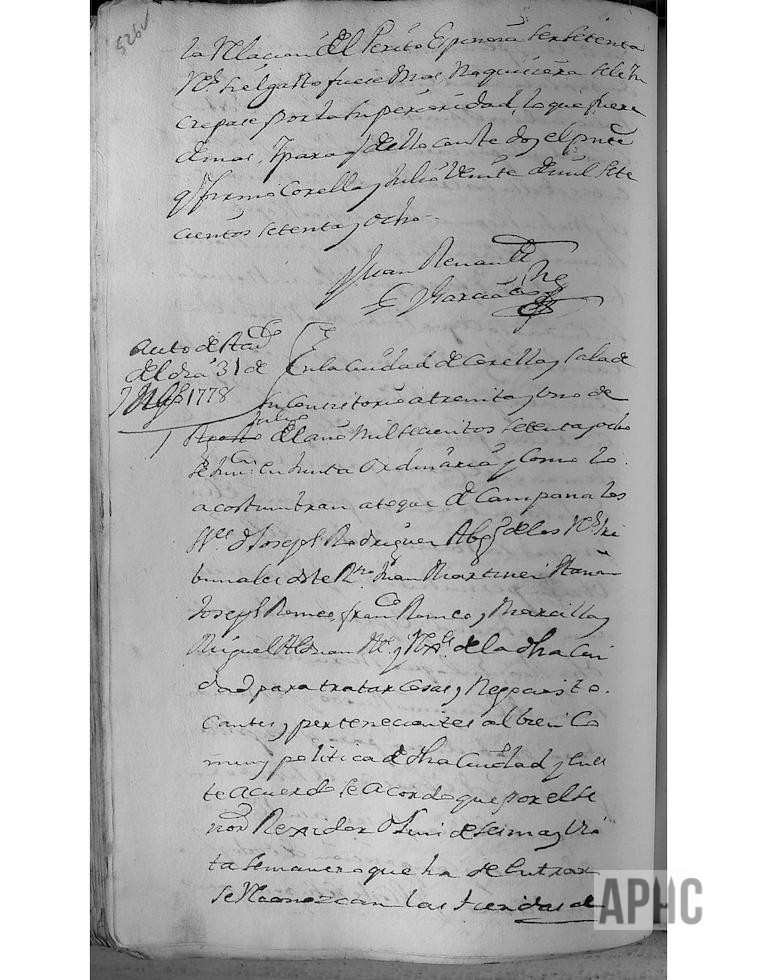 526v
la Relacion del Perito Espinosa ser setenta
Rs. si el gasto fuese mas no quisiera se le in
crepase por la superioridad, lo que fuere
demas. Y para q.e de ello conste doy el pnte
q.e firmo Corella y Julio Veinte de mil sete
cientos setenta y ocho.
Juan Renault
y Garcia
Auto de
del dia 31 de
1778
En la Ciudad de Corella y sala de
su Concistorio a treinta y uno de
Julio
Agosto del año mil setecientos setenta y ocho
se jun.on en Junta Ordinaria y como lo
acostumbran a toque de Campana los
SS.res D.n Joseph Rodriguez Abg.do de los R.s Tri
bunales de este R.no Juan Martinez
Joseph Romeo, fran.co Romeo y Marcilla y
Miguel Alduan Al.e y Rex.s de la dha Ciu
dad para tratar cosas y Negocios to
cantes y pertenecientes al bien Co
mun y politica de dha Ciudad y en es
te acuerdo se acordo que por el se
ñor Rexidor
ta semanero que ha de entrar
se Reconozcan las tiendas de
APHC